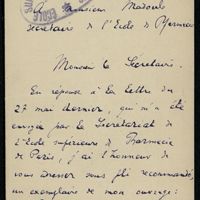 Monsieur Madoulé
Secrétaire de l'Ecole de Pharmacie
Monsieur le Secrétaire.
En réponse à la lettre du
27 mai dernier, qui m'a été
envoyée par le Secrétariat de
l'Ecole supérieure de Pharmacie
de Paris, j'ai l'honneur de
vous adresser sous pli recommandé,
un exemplaire de mon ouvrage: